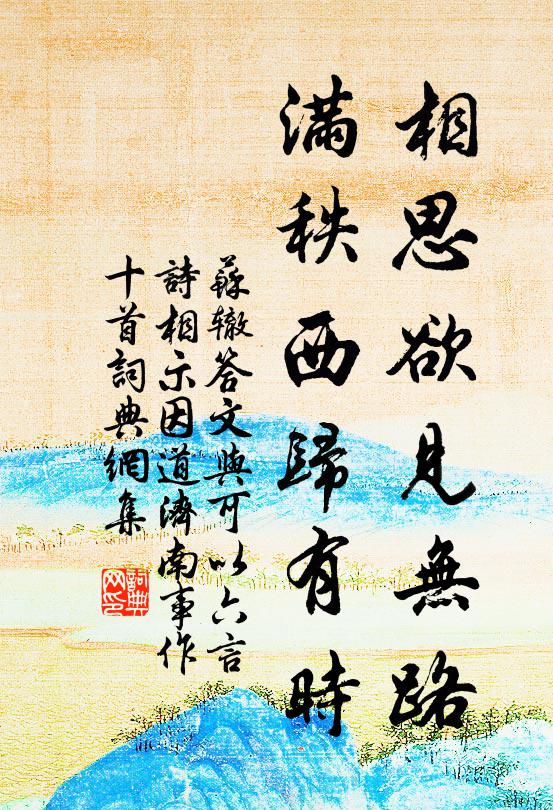 相思欲見無路
滿秩西歸有時
蘇轍答文與可以六言
詩相示因道濟南事作
十首詞典網集
詞典网印